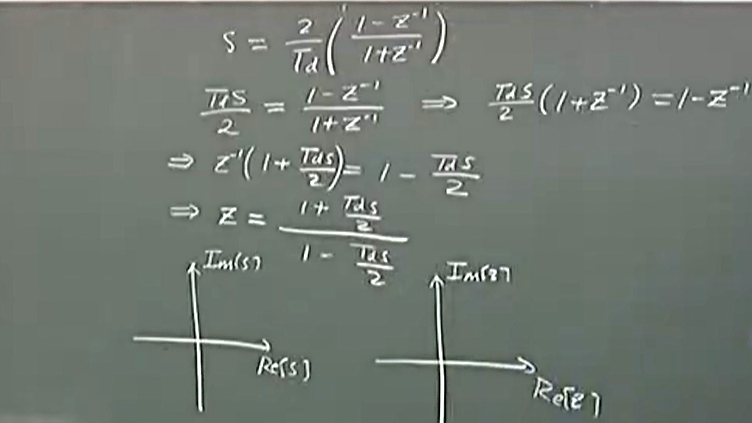 S = 2/Td ( (1 - Z⁻¹)/(1 + Z⁻¹) )
TdS/2 = (1 - Z⁻¹)/(1 + Z⁻¹) ⇒ TdS/2 (1 + Z⁻¹) = 1 - Z⁻¹
⇒ Z⁻¹(1 + TdS/2) = 1 - TdS/2
⇒ Z = (1 + TdS/2)/(1 - TdS/2)
Im[S] Im[Z]
Re[S] Re[Z]